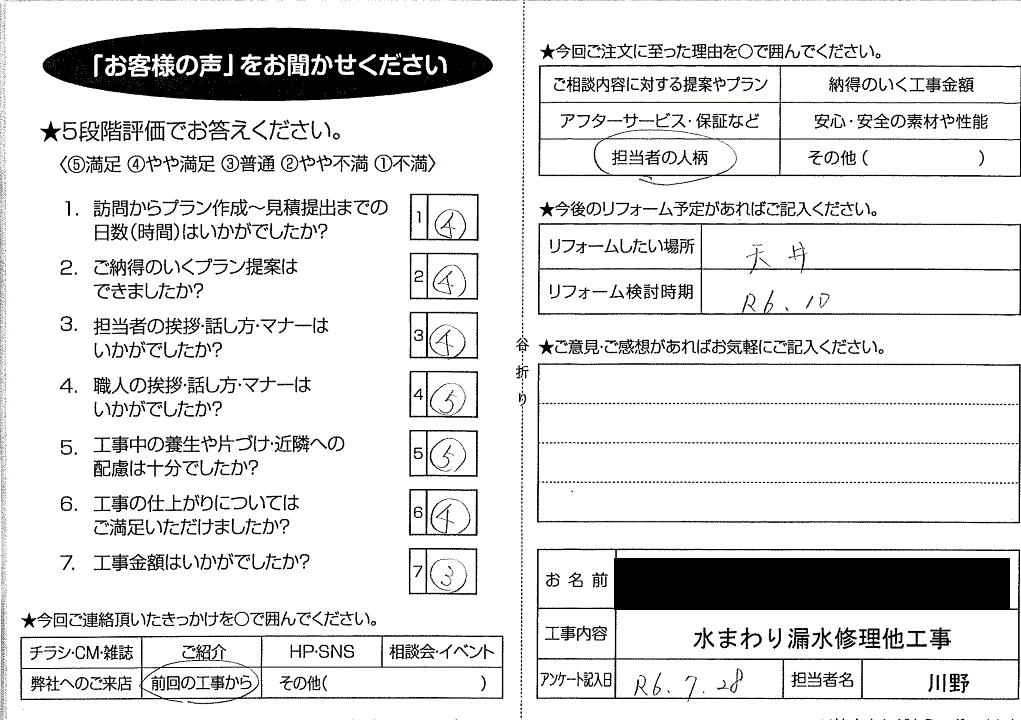 「お客様の声」をお聞かせください
★5段階評価でお答えください。
〈⑤満足 ④やや満足 ③普通 ②やや不満 ①不満〉
1. 訪問からプラン作成〜見積提出までの
日数(時間)はいかがでしたか?
1 ④
2. ご納得のいくプラン提案は
できましたか?
2 ④
3. 担当者の挨拶・話し方・マナーは
いかがでしたか?
3 ④
4. 職人の挨拶・話し方・マナーは
いかがでしたか?
4 ⑤
5. 工事中の養生や片づけ・近隣への
配慮は十分でしたか?
5 ⑤
6. 工事の仕上がりについては
ご満足いただけましたか?
6 ④
7. 工事金額はいかがでしたか?
7 ③
★今回ご連絡頂いたきっかけを○で囲んでください。
チラシ・CM・雑誌 ご紹介 HP・SNS 相談会・イベント
弊社へのご来店 前回の工事から その他( )
谷折り
★今回ご注文に至った理由を○で囲んでください。
ご相談内容に対する提案やプラン 納得のいく工事金額
アフターサービス・保証など 安心・安全の素材や性能
担当者の人柄 その他( )
★今後のリフォーム予定があればご記入ください。
リフォームしたい場所 天井
リフォーム検討時期 R6.10
★ご意見・ご感想があればお気軽にご記入ください。
お名前
工事内容 水まわり漏水修理他工事
アンケート記入日 R6.7.28 担当者名 川野